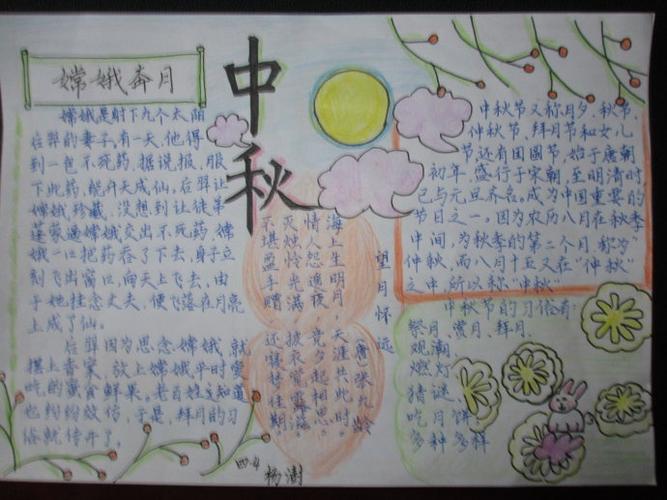 嫦娥奔月
嫦娥是射下九个太阳
后羿的妻子,有一天,他得
到一包不死药,据说报,服
下此药,能升天成仙,后羿让
嫦娥珍藏,没想到让徒弟
蓬蒙逼嫦娥交出不死药,嫦
娥一口把药吞了下去,身子立
刻飞出窗口,向天上飞去,由
于她挂念丈夫,便飞落在月亮
上成了仙。
后羿因为思念嫦娥,就
摆上香案,放上嫦娥平时爱
吃的蜜食鲜果。老百姓知道
也纷纷效仿,于是,拜月的习
俗就传开了。
中秋
望月怀远
(唐)张九龄
海上生明月,天涯共此时。
情人怨遥夜,竟夕起相思。
灭烛怜光满,披衣觉露滋。
不堪盈手赠,还寝梦佳期。
中秋节又称月夕、秋节、
仲秋节、拜月节和女儿
节,还有团圆节,始于唐朝
初年,盛行于宋朝,至明清时
已与元旦齐名,成为中国重要的
节日之一。因为农历八月在秋季
中间,为秋季的第二个月,称为"
仲秋,而八月十五又在"仲秋"
之中,所以称"中秋"
中秋节的习俗有:
祭月、赏月、拜月、
观潮、
燃灯、
猜谜、
吃月饼、
多种多样
四.4
杨澍